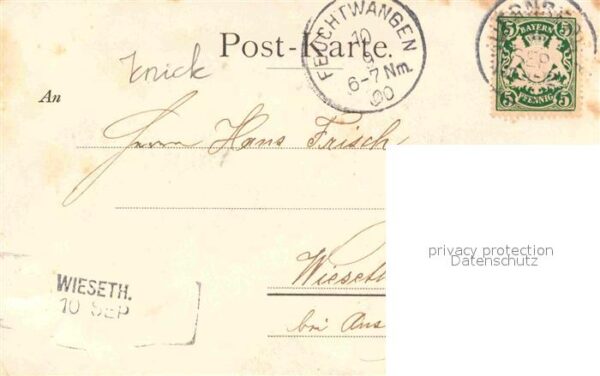 Post-Karte.
FEUCHTWANGEN
10
6-7 Nm.
00
5 BAYERN 5
5 PFENNIG 5
Knick
An
Herrn Hans Frisch
privacy protection
Datenschutz
Wieseth
bei Ans
WIESETH.
10 SEP